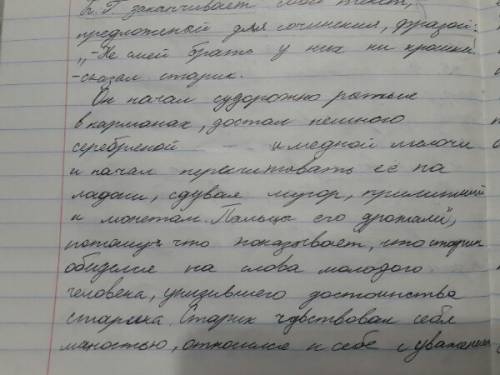 Б. Г заканчивает свой текст,
предложеный для сочинения, фразой:
„-Не смей брать у них ни крошки
-сказал старик.
Он начал судорожно рытые
в карманах, достал немного
серебреной и медной мелочи
и начал пересчитовать её на
ладони, сдувая мусор, прилипший
к монетам. Пальцы его дрожали",
потому что показывает, что старик
обиделся на слова молодого
человека, унизившего достоинства
старика. Старик чувствовал себя
личностью, относился к себе с уважением